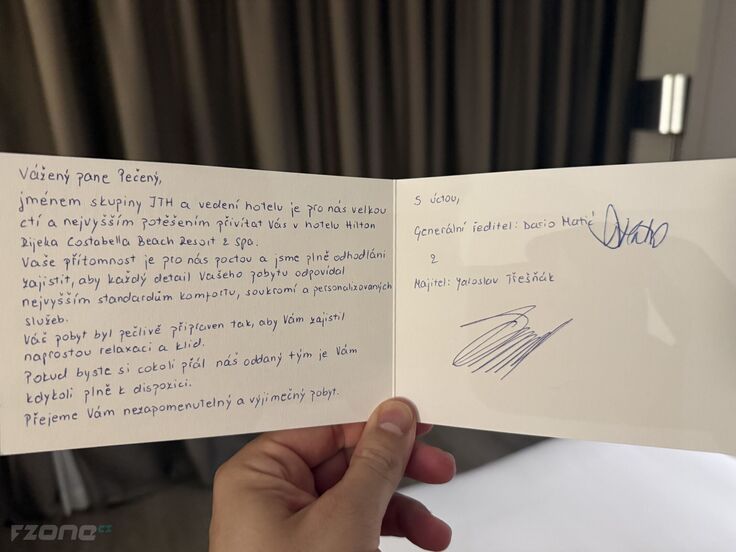 Vážený pane Pečený,
jménem skupiny JTH a vedení hotelu je pro nás velkou
ctí a nejvyšším potěšením přivítat Vás v hotelu Hilton
Rijeka Costabella Beach Resort & Spa.
Vaše přítomnost je pro nás poctou a jsme plně odhodláni
zajistit, aby každý detail Vašeho pobytu odpovídal
nejvyšším standardům komfortu, soukromí a personalizovaných
služeb.
Váš pobyt byl pečlivě připraven tak, aby Vám zajistil
naprostou relaxaci a klid.
Pokud byste si cokoli přál náš oddaný tým je Vám
kdykoli plně k dispozici.
Přejeme Vám nezapomenutelný a výjimečný pobyt.
S úctou,
Generální ředitel: Dario Matić
&
Majitel: Yaroslav Třešňák
FZONE.CZ